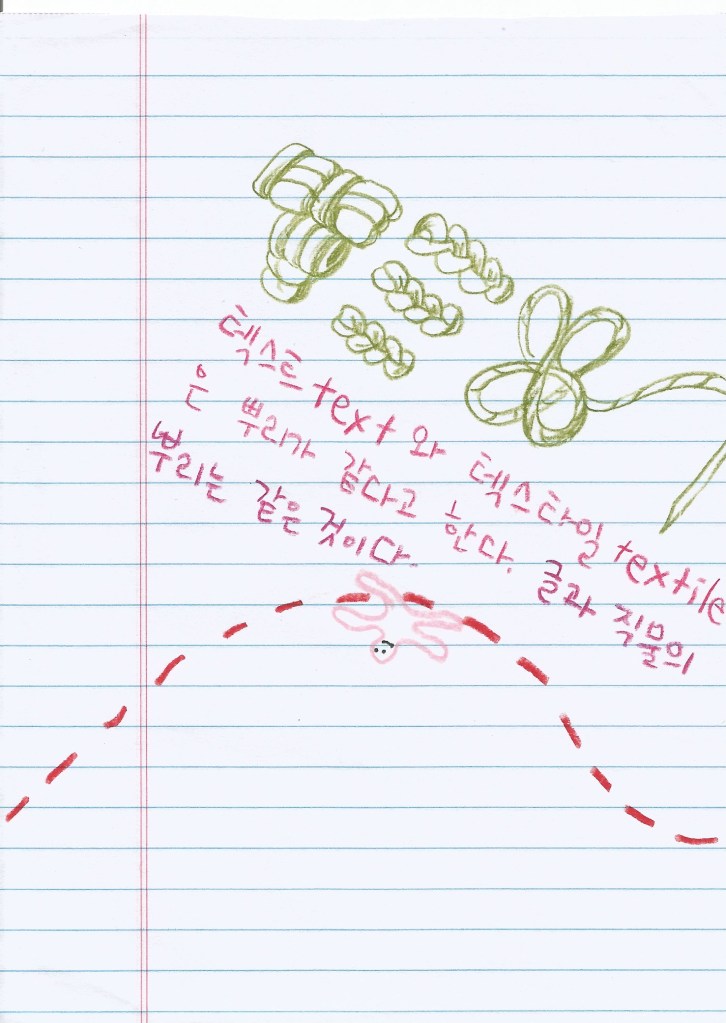 텍스트 text 와 텍스타일 textile
은 뿌리가 같다고 한다. 글과 직물의
뿌리는 같은 것이다.